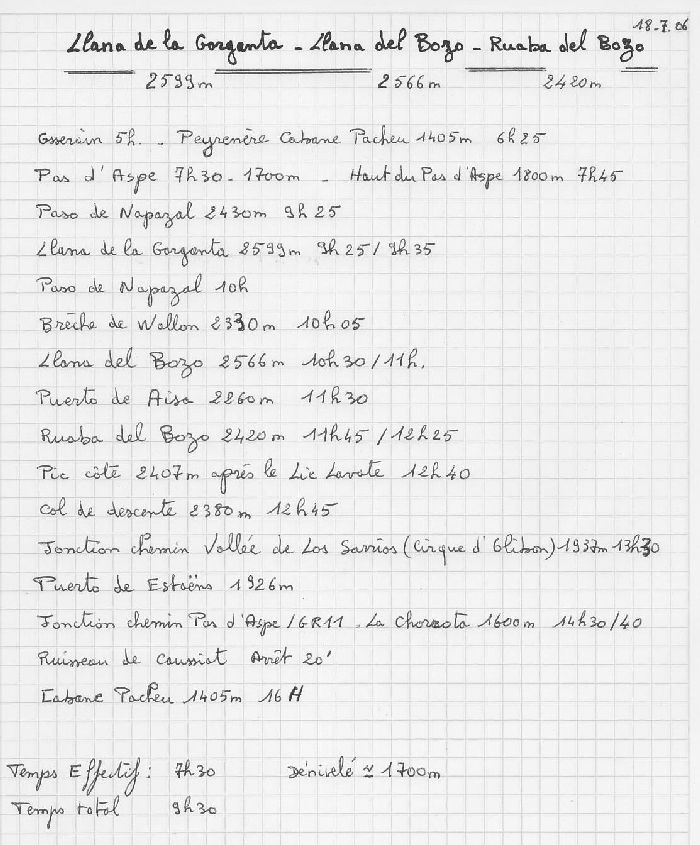 18-7.06
Llana de la Gorganta - Llana del Bozo - Ruaba del Bozo
2599m 2566m 2420m
Gsseràin 5h. - Peyrenère Cabane Pacheu 1405m 6h25
Pas d'Aspe 7h30 - 1700m - Haut du Pas d'Aspe 1800m 7h45
Paso de Napazal 2430m 9h25
Llana de la Gorganta 2599m 9h25 / 9h35
Paso de Napazal 10h
Brèche de Wallon 2330m 10h05
Llana del Bozo 2566m 10h30 / 11h.
Puerto de Aisa 2260m 11h30
Ruaba del Bozo 2420m 11h45 / 12h25
Pic côté 2407m après le Lic Lavate 12h40
Col de descente 2380m 12h45
Jonction chemin Vallée de Los Sarrios (Cirque d'Olibon) 1937m 13h30
Puerto de Estaëns 1926m
Jonction chemin Pas d'Aspe / GR11. La Chorrota 1600m 14h30/40
Ruisseau de Causiat Arrêt 20'
Cabane Pacheu 1405m 16H
Temps Effectif : 7h30 Dénivelé ≃ 1700m
Temps total 9h30